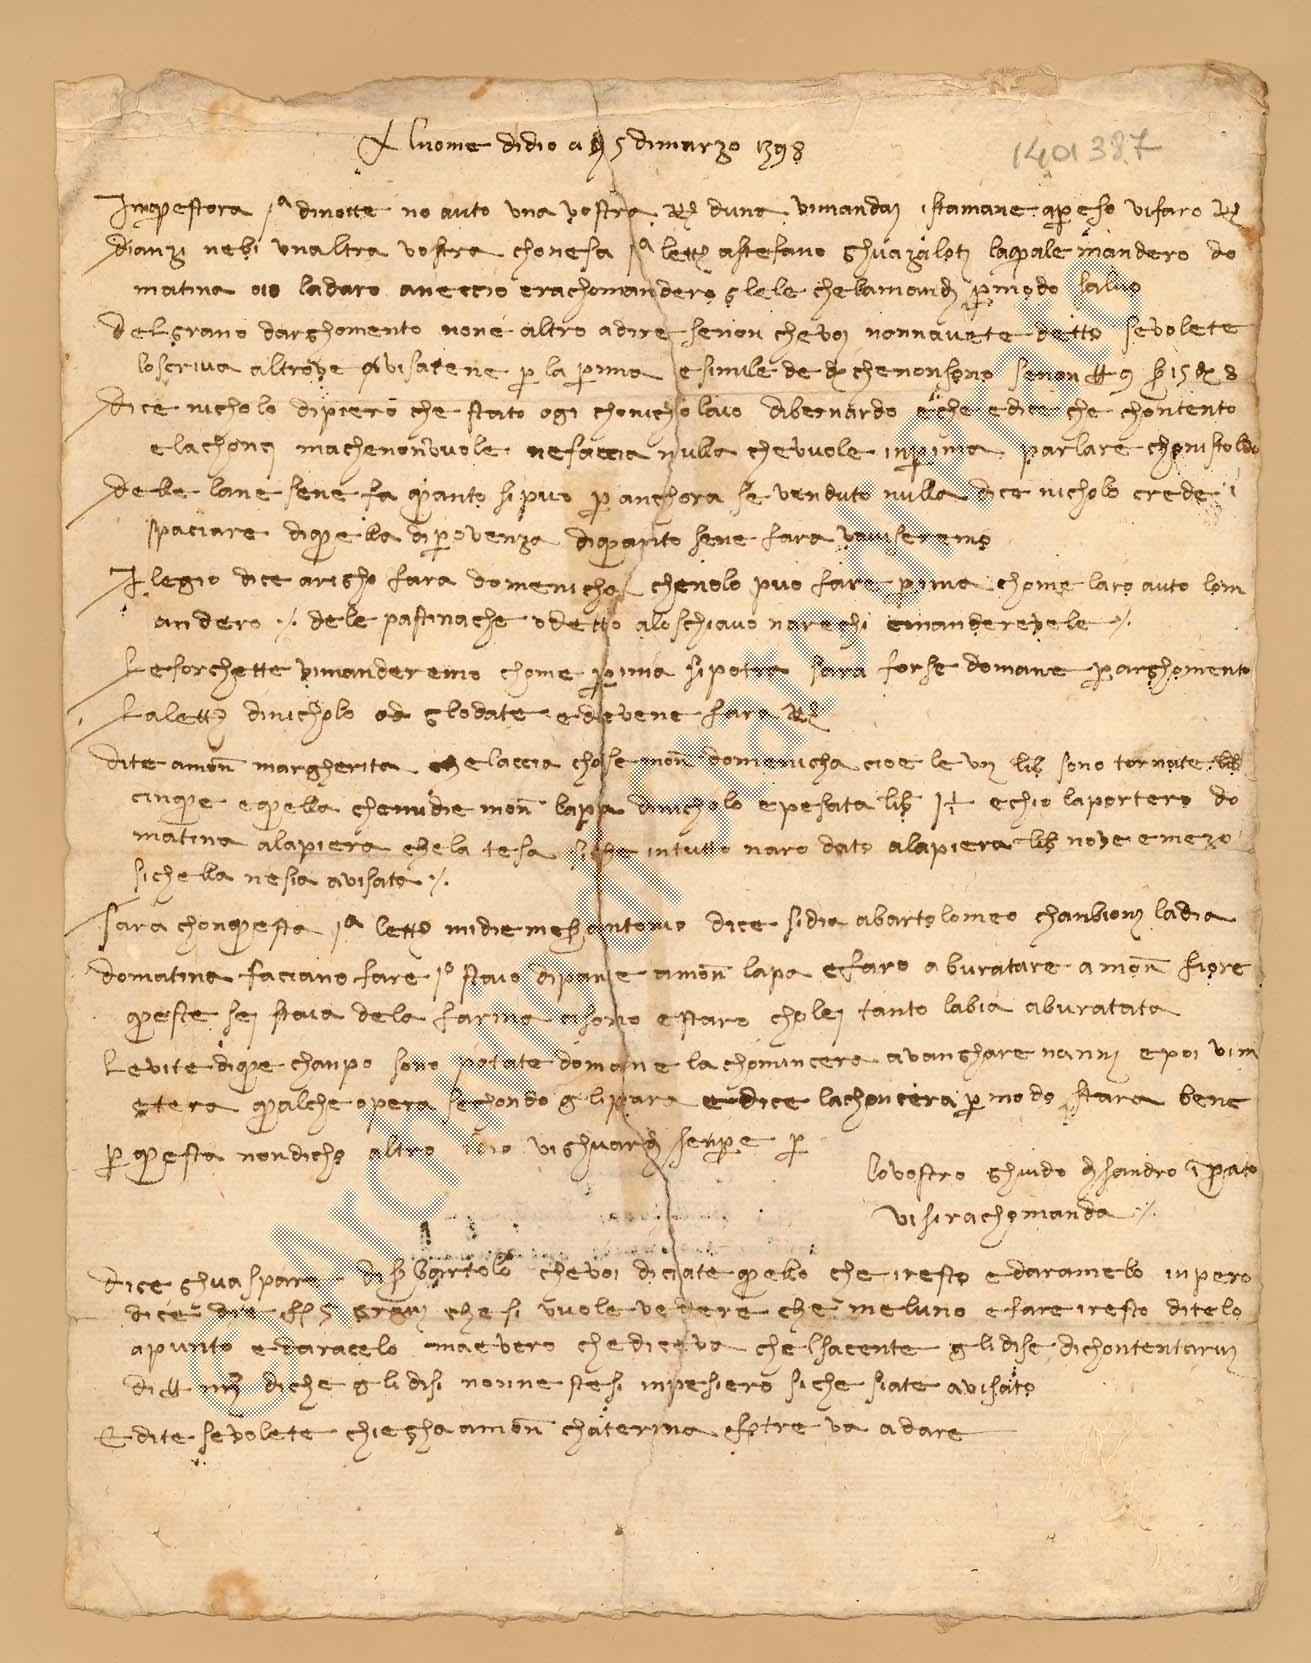 Al nome di dio a dì 5 di marzo 1398
1401387
In questora 1ª di notte no auto una vostra R° duna vi mandai istamane apreso vi faro R°
dianzi nebi unaltra vostra chon esa 1ª lettª a stefano ghuazaloti la quale mandero do
matina o io la daro a neccio e rachomandero gliele che la mandi per modo salvo
del grano darghomento none altro a dire senon che voi nonn avete detto se volete
lo scriva altrove avisatene per la prima e simile de d che non sono senon ff 9 s 15 d 8
dice nicholo di piero che stato ogi cho nicholaio di bernardo e che e dice che chontento
e la chonci ma che non vuole ne faccia nulla che vuole in prima parlare chon istoldo
delle lane sene fa quanto si puo per anchora se venduto nulla dice nicholo crede i
spaciare di quella di provenza di quanto sene fara vaviseremo
I legio dice arigho fara domenicho che nolo puo fare prima chome laro auto lo m
andero ·/· dele pastinache o detto alo schiavo n arechi e manderevele ·/·
Le forchette vi manderemo chome prima si potra sara forse domane per arghomento
La lettª di nicholo gl o date e di e vene fara R°
dite a monª margherita che laccia chose monª domenicha cioe le vi lib sono tornate lib
cinque e quella che mi die monª lapa di nicholo e pesata lib e chio la portero do
matina ala piera che la tesa siche in tutto naro dato ala piera lib nove e mezo
si chella ne sia avisata ·/·
Sara chon questa 1ª lettª mi die antonio dice si dia a bartolomeo chanbioni la dia
domatina faciano fare 1° staio di pane a monª lapa e faro aburatare a monª fiore
queste sei staia dela farina ci sono e staro cholei tanto labia aburatata
Le vite di que chanpo sono potate domane la chomincera a vanghare nanni e poi vi m
etera qualche opera sechondo gli para e dice lachoncera per modo stara bene
per questa non dicho altro idio vi ghuardi senpre per
lo vostro ghuido di sandro in prato
vi si rachomanda ·/·
dice ghuaspare di s bartolo che voi diciate quello che i resto e daramelo inpero
dice die s grani che si vuole vedere che meluno e fare i resto ditelo
apunto e daracelo ma e vero che diceva chel facente gli dise di chontentarvi
di ff di che gli disi nonne stesi in pesiero siche siate avisato
E dite se volete chiegha a monª chaterina oltre va a dare